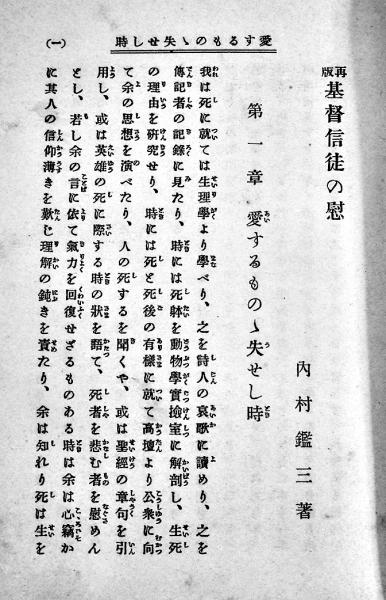 愛するものゝ失せし時
(一)
再版 基督信徒の慰
内村鑑三著
第一章 愛するものゝ失せし時
我は死に就ては生理學より學べり、之を詩人の哀歌に讀めり、之を
傳記者の記錄に見たり、時には死躰を動物學實驗室に解剖し、生死
の理由を硏究せり、時には死と死後の有樣に就て高壇より公衆に向
て余の思想を演べたり、人の死するを聞くや、或は聖經の章句を引
用し、或は英雄の死に際する時の狀を語て、死者を悲む者を慰めん
とし、若し余の言に依て氣力を回復せざるものある時は余は心竊か
に其人の信仰薄きを歎じ理解の鈍きを責たり、余は知れり死は生を